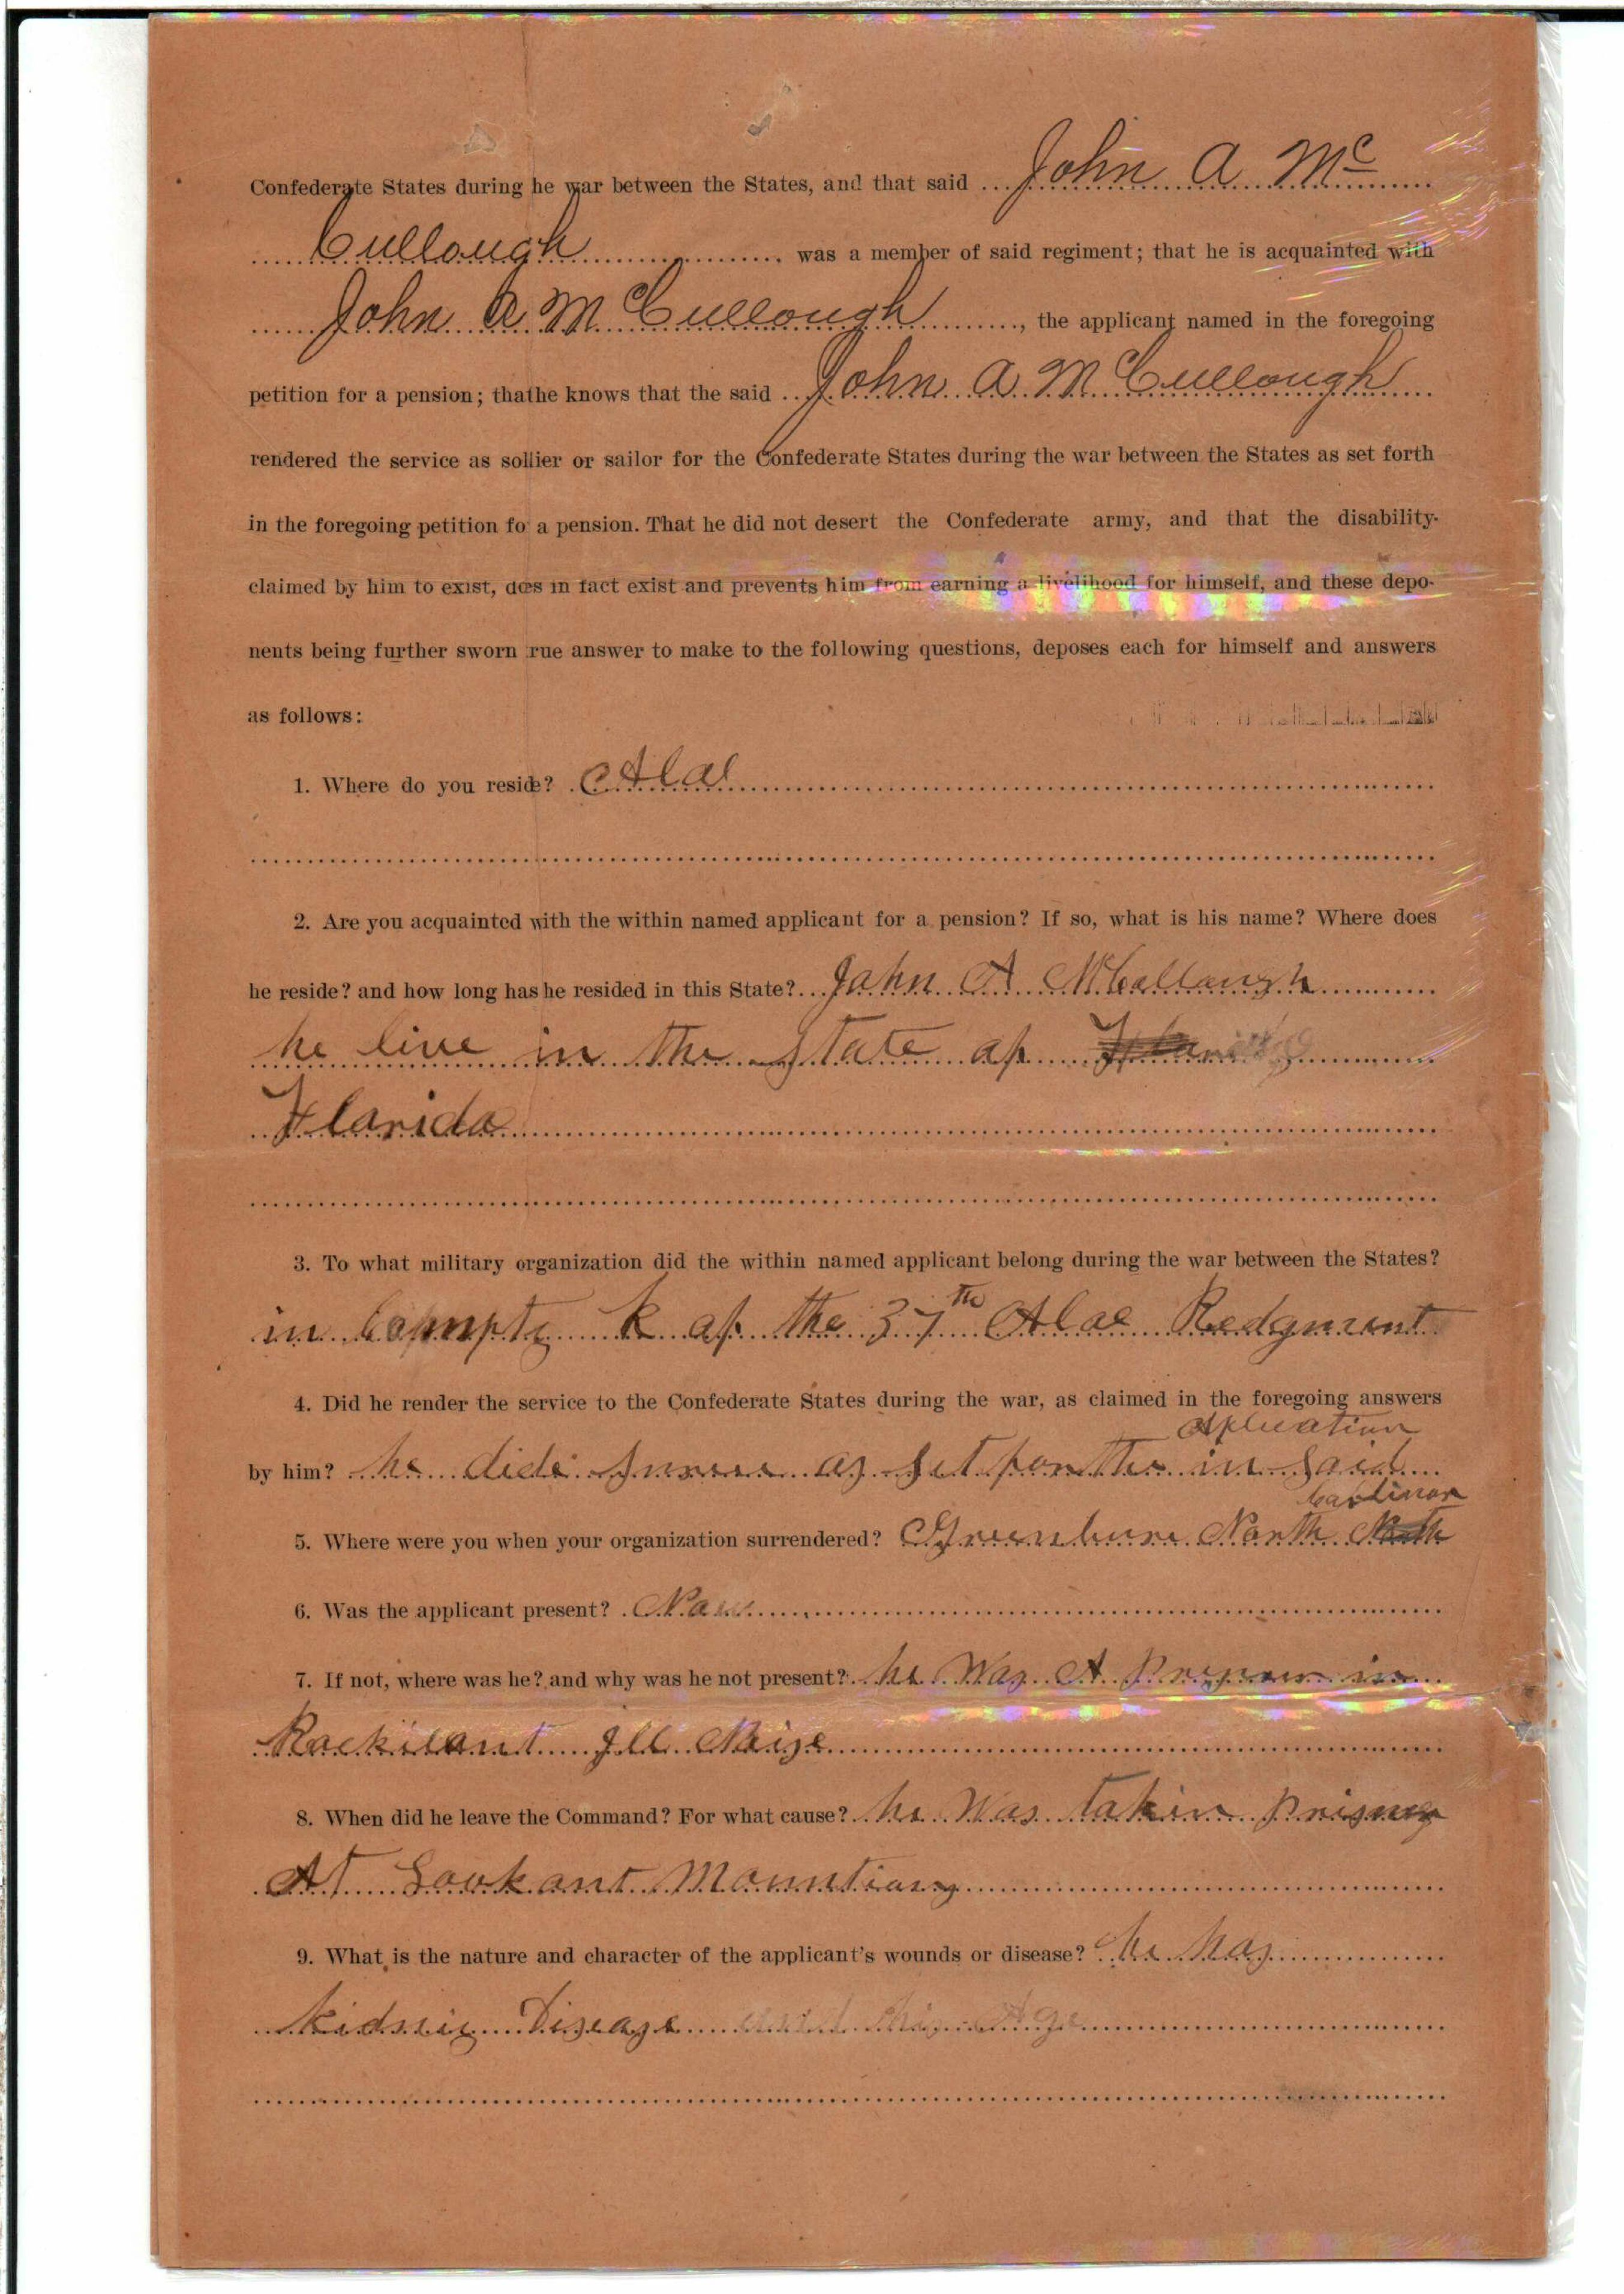 Confederate States during he war between the States, and that said John A Mc
Cullough was a member of said regiment; that he is acquainted with
John A McCullough, the applicant named in the foregoing
petition for a pension; thathe knows that the said John A McCullough
rendered the service as sollier or sailor for the Confederate States during the war between the States as set forth
in the foregoing petition fo a pension. That he did not desert the Confederate army, and that the disability
claimed by him to exist, does in fact exist and prevents him from earning a livelihood for himself, and these depo-
nents being further sworn rue answer to make to the following questions, deposes each for himself and answers
as follows:
1. Where do you reside? Ala
2. Are you acquainted with the within named applicant for a pension? If so, what is his name? Where does
he reside? and how long has he resided in this State? John A McCullough
he live in the State of
Florida
3. To what military organization did the within named applicant belong during the war between the States?
in Compty K of the 37th Ala Redgment
4. Did he render the service to the Confederate States during the war, as claimed in the foregoing answers
Aplication
by him? he did as set forth in Said
Carlinar
5. Where were you when your organization surrendered? North North
6. Was the applicant present?
7. If not, where was he? and why was he not present? he Was A in
Ill
8. When did he leave the Command? For what cause? he Was takin
At Lookant Mountians
9. What is the nature and character of the applicant's wounds or disease? he has
kidniy Disease and his Age